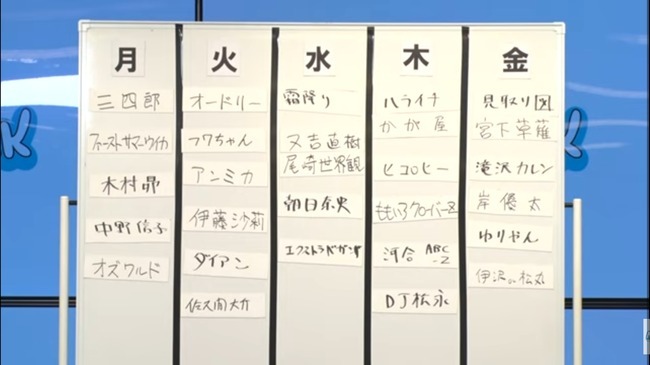 月
三四郎
ファーストサマーウイカ
木村昴
中野信子
オズワルド
火
オードリー
フワちゃん
アンミカ
伊藤沙莉
ダイアン
佐久間大介
水
霜降り
又吉直樹
尾崎世界観
朝日奈央
エクストラバガンザ
木
ハライチ
かが屋
ヒコロヒー
ももいろクローバーZ
河合 ABC
-Z
DJ松永
金
見取り図
宮下草薙
滝沢カレン
岸優太
ゆりやん
伊沢&松丸